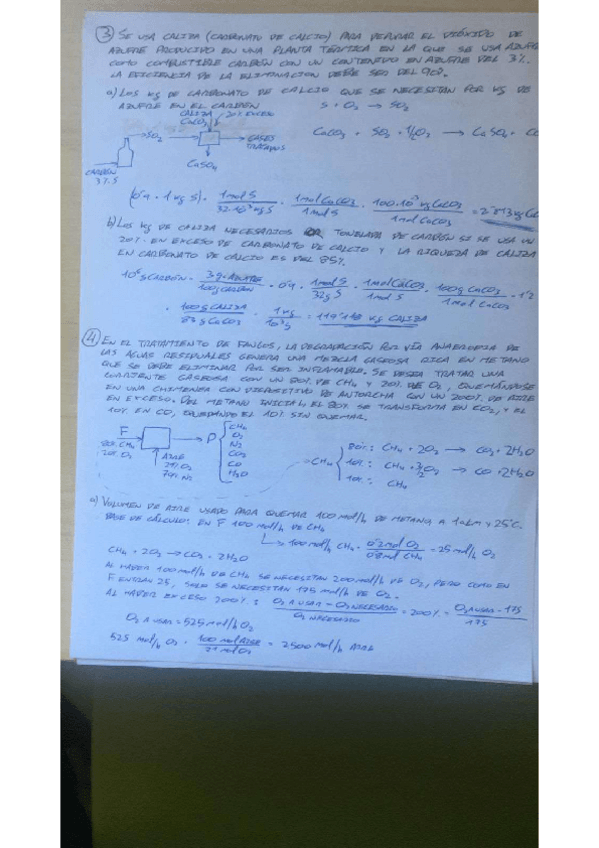 ③ SE USA CALIZA (CARBONATO DE CALCIO) PARA DEPURAR EL DIÓXIDO DE
AZUFRE PRODUCIDO EN UNA PLANTA TÉRMICA EN LA QUE SE USA
COMO COMBUSTIBLE CARBÓN CON UN CONTENIDO EN AZUFRE DEL 3%.
LA EFICIENCIA DE LA ELIMINACIÓN DEBE SER DEL 90%.
a) LOS kg DE CARBONATO DE CALCIO QUE SE NECESITAN POR kg DE
AZUFRE EN EL CARBÓN S + O2 → SO2
CALIZA CaCO3 20% EXCESO
SO2 → GASES TRATADOS CaCO3 + SO2 + 1/2 O2 → CaSO4 +
CaSO4
CARBÓN
3% S
(0'9 · 1 kg S) · 1 mol S / 32·10⁻³ kg S · 1 mol CaCO3 / 1 mol S · 100·10⁻³ kg CaCO3 / 1 mol CaCO3 = 2'813 kg
b) LOS kg DE CALIZA NECESARIOS TONELADA DE CARBÓN SI SE USA UN
20% EN EXCESO DE CARBONATO DE CALCIO Y LA RIQUEZA DE CALIZA
EN CARBONATO DE CALCIO ES DEL 85%.
10⁶ g CARBÓN · 3 g AZUFRE / 100 g CARBÓN · 0'9 · 1 mol S / 32 g S · 1 mol CaCO3 / 1 mol S · 100 g CaCO3 / 1 mol CaCO3 · 1'2
· 100 g CALIZA / 85 g CaCO3 · 1 kg / 10³ g = 119'118 kg CALIZA
④ EN EL TRATAMIENTO DE FANGOS, LA DEGRADACIÓN POR VÍA ANAEROBIA DE
LAS AGUAS RESIDUALES GENERA UNA MEZCLA GASEOSA RICA EN METANO
QUE SE DEBE ELIMINAR POR SER INFLAMABLE. SE DESEA TRATAR UNA
CORRIENTE GASEOSA CON UN 80% DE CH4 Y 20% DE O2, QUEMÁNDOSE
EN UNA CHIMENEA CON DISPOSITIVO DE ANTORCHA CON UN 200% DE AIRE
EN EXCESO. DEL METANO INICIAL, EL 80% SE TRANSFORMA EN CO2, Y EL
10% EN CO, QUEDANDO EL 10% SIN QUEMAR.
F → P
80% CH4
20% O2
AIRE
21% O2
79% N2
CH4
O2
N2
CO2
CO
H2O
CH4
80%: CH4 + 2O2 → CO2 + 2H2O
10%: CH4 + 3/2 O2 → CO + 2H2O
10%: CH4
a) VOLUMEN DE AIRE USADO PARA QUEMAR 100 mol/h DE METANO, A 1 atm Y 25°C.
BASE DE CÁLCULO: EN F 100 mol/h DE CH4
→ 100 mol/h CH4 · 0'2 mol O2 / 0'8 mol CH4 = 25 mol/h O2
CH4 + 2O2 → CO2 + 2H2O
AL HABER 100 mol/h DE CH4 SE NECESITAN 200 mol/h DE O2, PERO COMO EN
F ENTRAN 25, SOLO SE NECESITAN 175 mol/h DE O2.
AL HABER EXCESO 200%: O2 A USAR - O2 NECESARIO / O2 NECESARIO = 200% = O2 A USAR - 175 / 175
O2 A USAR = 525 mol/h O2
525 mol/h O2 · 100 mol AIRE / 21 mol O2 = 2500 mol/h AIRE